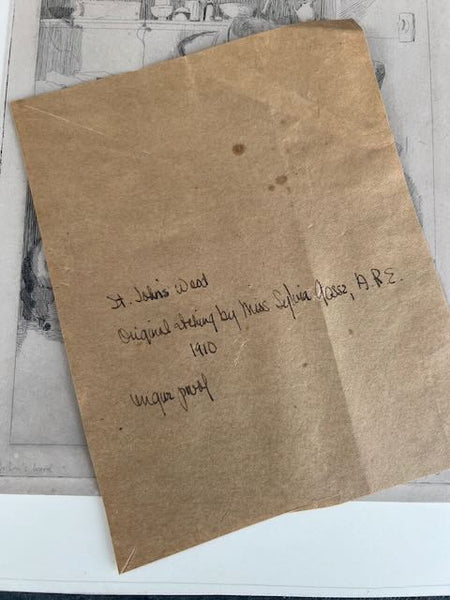 St. John's Wood
Original etching by Miss Sylvia Gosse, A.R.E.
1910
proof